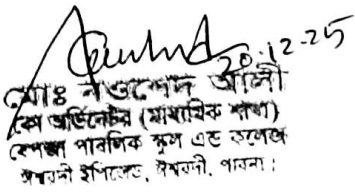 20-12-25
মোঃ নওশেদ আলী
কো অর্ডিনেটর (মাধ্যমিক শাখা)
বেপজা পাবলিক স্কুল এন্ড কলেজ
ঈশ্বরদী ইপিজেড, ঈশ্বরদী, পাবনা।